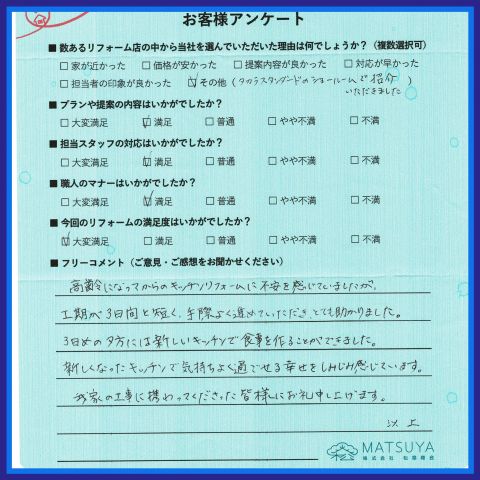 お客様アンケート
■ 数あるリフォーム店の中から当社を選んでいただいた理由は何でしょうか？（複数選択可）
□ 家が近かった □ 価格が安かった □ 提案内容が良かった □ 対応が早かった
□ 担当者の印象が良かった ☑ その他（タカラスタンダードのショールームで紹介いただきました）
■ プランや提案の内容はいかがでしたか？
□ 大変満足 ☑ 満足 □ 普通 □ やや不満 □ 不満
■ 担当スタッフの対応はいかがでしたか？
□ 大変満足 ☑ 満足 □ 普通 □ やや不満 □ 不満
■ 職人のマナーはいかがでしたか？
□ 大変満足 ☑ 満足 □ 普通 □ やや不満 □ 不満
■ 今回のリフォームの満足度はいかがでしたか？
☑ 大変満足 □ 満足 □ 普通 □ やや不満 □ 不満
■ フリーコメント（ご意見・ご感想をお聞かせください）
高齢になってからのキッチンリフォームに不安を感じていましたが、
工期が3日間と短く、手際よく進めていただき、とても助かりました。
3日めの夕方には新しいキッチンで食事を作ることができました。
新しくなったキッチンで気持ちよく過ごせる幸せをしみじみ感じています。
我家の工事に携わってくださった皆様にお礼申し上げます。
以上
MATSUYA
株式会社 松屋商会